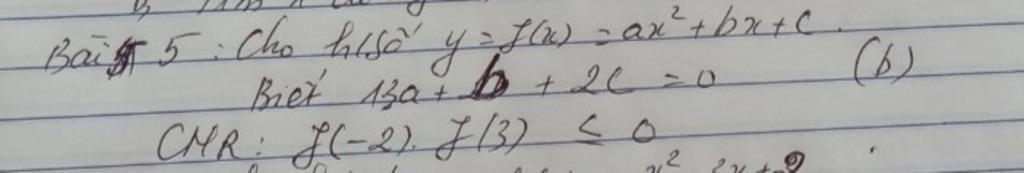 Bài 5 : Cho h/số y = f(x) = ax² + bx + c.
Biết 13a + b + 2c = 0 (b)
CMR : f(-2). f(3) ≤ 0